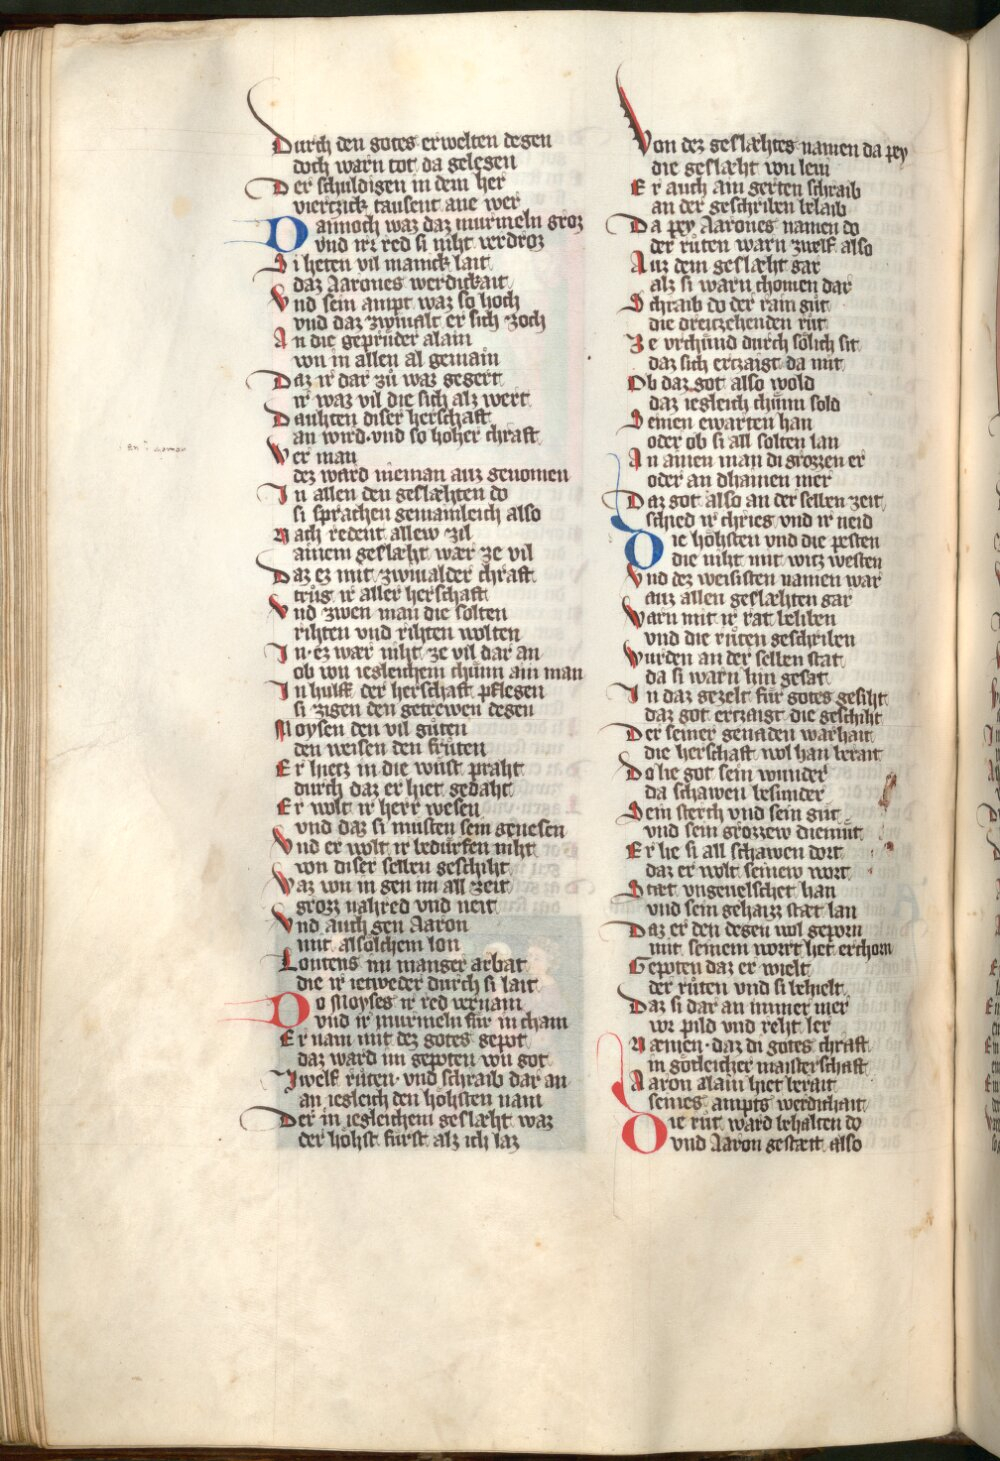 Durch den gotes erwelten degen
doch warn tot da gelegen
Der schuldigen in dem her
viertzick tausent ane wer
Dannoch waz daz murmeln groz
vnd irr red si niht verdroz
Si heten vil manick lait
daz Aarones werdickait
Vnd sein ampt waz so hoch
vnd daz zwiualt er sich zoch
An die geprüder alain
von in allen al gemain
Daz ir dar zů waz gegert
ir waz vil die sich alz wert
Dauhten diser herschaft
an wird · vnd so hoher chraft
Wer man
dez ward nieman auz genomen
In allen den geslæhten do
si sprachen gemainleich also
Nach redent allew zil
ainem geslæht wær ze vil
Daz ez mit zwiualder chraft
trůg ir aller herschaft
Vnd zwen man die solten
rihten vnd rihten wolten
In · ez wær niht ze vil dar an
ob von iegleichem chünn ain man
In hulff der herschaft pflegen
si zigen den getrewen degen
Moysen den vil gůten
den weisen den frůten
Er hietz in die wůst praht
durch daz er hiet gedaht
Er wolt ir herr wesen
vnd daz si müsten sein genesen
Vnd er wolt ir bedürfen niht
von diser selben geschiht
Waz von in gen im all zeit
grozz nahred vnd neit
Vnd auch gen Aaron
mit alsölchem lon
Lontens im manger arbat
die ir ietweder durch si lait
Do Moyses ir red vernam
vnd ir murmeln für in cham
Er nam mit dez gotes gepot
daz ward im gepoten von got
Zwelf růten · vnd schraib dar an
an iegleich den höhsten nam
Der in iegleichem geslæht waz
der höhst fürst alz ich laz
Von dez geslæhtes namen da pey
die geslæht von leui
Er auch ain gerten schraib
an der geschriben belaib
Da pey Aarones namen do
der růten warn zwelf also
Auz dem geslæht gar
alz si warn chomen dar
Schraib do der rain gůt
die dreitzehenden růt
Ze vrchünd durch sölich sit
daz sich ertzaigt da mit
Ob daz got also wold
daz iegleich chünn sold
Seinen ewarten han
oder ob si all solten lan
An ainen man di grozzen er
oder an dhainen mer
Daz got also an der selben zeit
schied ir chrieg vnd ir neid
Die höhsten vnd die pesten
die niht mit witz westen
Vnd dez weisisten namen war
auz allen geslæhten gar
Warn mit ir rat beliben
vnd die růten geschriben
Wurden an der selben stat
da si warn hin gesat
In daz gezelt für gotes gesiht
daz got ertzaigt die geschiht
Der seiner genaden warhait
die herschaft wol han berait
Do lie got sein wunder
da schawen besunder
Sein sterch vnd sein gůt
vnd sein grozzew diemůt
Er lie si all schawen dort
daz er wolt seinew wort
Stæt vngeuelschet han
vnd sein gehaizz stæt lan
Daz er den degen wol geporn
mit seinem wort het erchorn
Gepoten daz er wielt
der růten vnd si behielt
Daz si dar an immer mer
vor pild vnd reht ler
Næmen · daz di gotes chraft
in götleicher maisterschaft
Aaron alain hiet berait
seines ampts werdichait
Die růt ward behalten do
vnd Aaron gestætt also